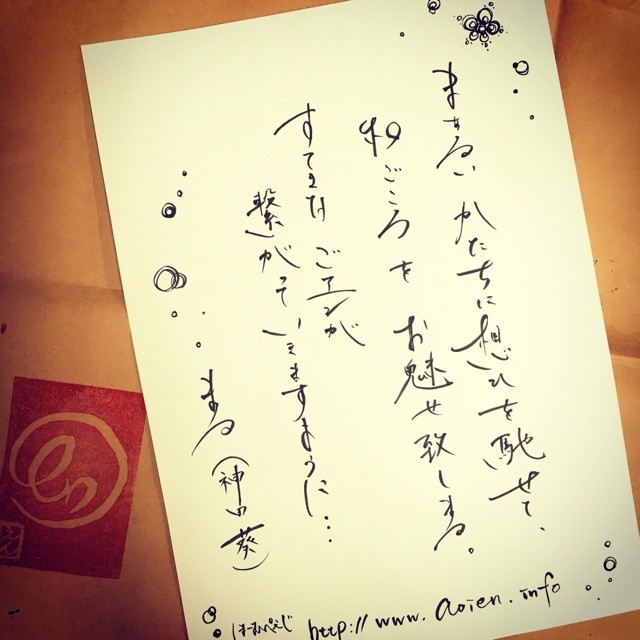 まぁるいかたちに想ひを馳せて、
和ごころをお魅せ致しまする。
すてきなごエンが
繋がっていきますように…
まる（神田葵）
ほーむぺーじ http://www.aoien.info